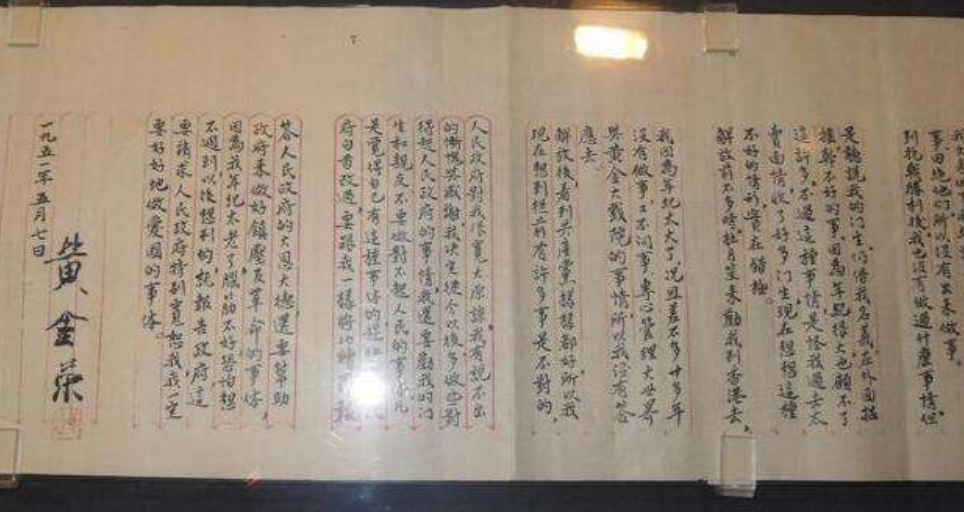 事因
到抗戰勝利後我也沒有做過什麼事情但
是聽説我的门生仍借我名義在外面招
搖幹不好的事因為年紀
這許多不過這種事情是怪我過去太
賣面情收了好多门生現在想想這種
不好的情形實在錯極。
解放前不多時杜月笙來勸我到香港去，
我因為年纪太大了况且差不多廿多年
沒有做事了不问事專心管理大世界
與黄金大戯院的事情所以我没有答
應去
解放後看到共產黨樣樣都好所以我
現在想到從前有許多事是不對的，
人民政府對我很寬大原諒我有說不出
的慚愧與感謝我决定從今以後多做些對
得起人民政府的事情我還要勸我的门
生和親友不要做對不起人民的事凡
是覺得自己有這種事体的
府
答人民政府的大恩大德還要幫助
政府來做好鎮壓反革命的事体，
因為我年纪太老了腦筋不好恐怕想
不週到以後想到的統報告政府這
要請求人民政府特别寬恕我我一定
要好好地做愛國的事体。
黄金榮
一九五一年五月七日